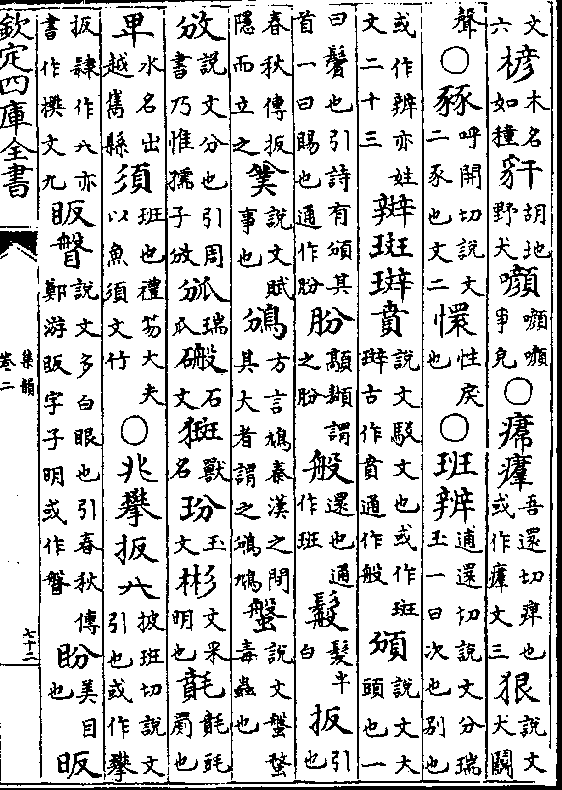 文六㮤木名如橦豻胡地野犬𡄖事皃○𤸷𤹪吾還切痺也或作𤹪文三狠說文犬鬭
聲○豩呼關切說文二豕也文二懁性戾也○班辨逋還切說文分瑞玉一曰次也別也
或作辨亦姓文二十三辬斑㻞賁說文駁文也或作斑㻞古作賁通作般頒說文大頭也一
曰鬢也引詩有頒其首一曰賜也通作朌朌顒顙謂之朌般還也通作班鬗髮半白扳引也
春秋傳扳隱而立之𢍏說文賦事也鳻方言鳩秦漢之間其大者謂之鳻鳩螌說文螌蝥毒蟲也
攽說文分也引周書乃惟孺子攽㼎瑞瓜䃑石文㺜獸名玢玉文彬文采明也𣬼毦罽也
𤰞水名出越嶲縣須班也禮笏大夫以魚須文竹○𠬜攀扳𠔁披班切說文引也或作攀
扳隸作𠔁亦書作㩯文九眅䁅說文多白眼也引春秋傳鄭游眅字子明或作䁅盼美目也眅
欽定四庫全書
集韻
卷二
七十二